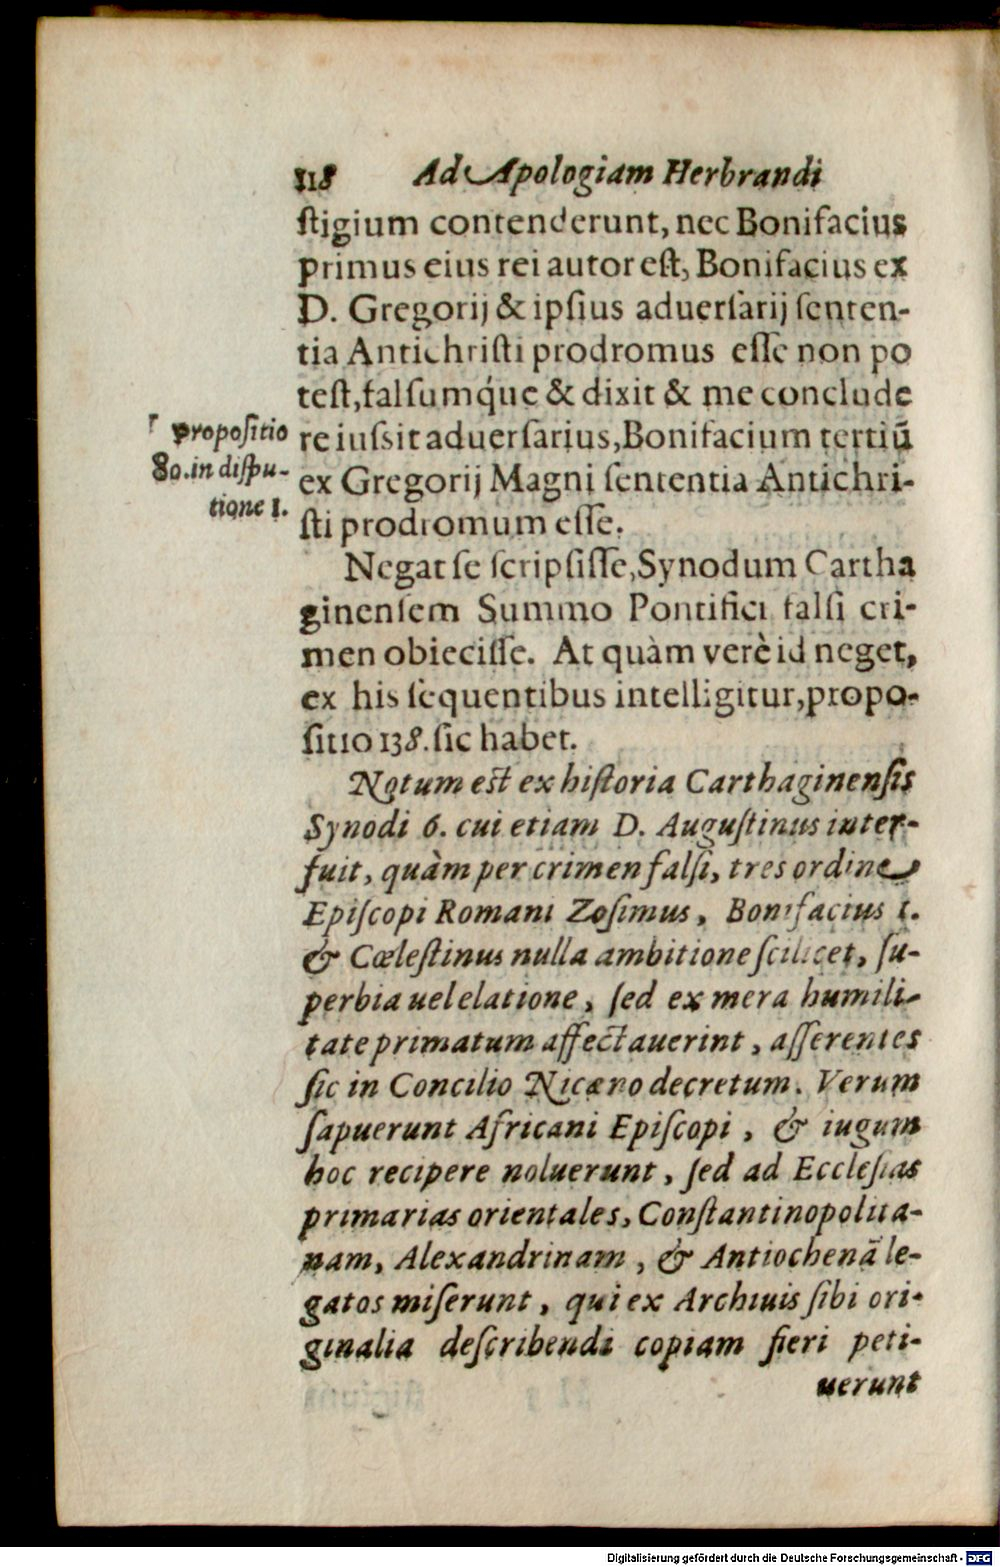 118 Ad Apologiam Herbrandi
ſtigium contenderunt, nec Bonifacius
primus eius rei autor eſt, Bonifacius ex
D. Gregorij & ipſius aduerſarij ſenten-
tia Antichriſti prodromus eſſe non po
teſt, falſumq́ue & dixit & me conclude
re iuſsit aduerſarius, Bonifacium tertiū
ex Gregorij Magni ſententia Antichri-
ſti prodromum eſſe.
r propoſitio
80. in diſpu-
tione 1.
Negat ſe ſcripſiſſe, Synodum Cartha
ginenſem Summo Pontifici falſi cri-
men obieciſſe. At quàm verè id neget,
ex his ſequentibus intelligitur, propo-
ſitio 138. ſic habet.
Notum eſt ex hiſtoria Carthaginenſis
Synodi 6. cui etiam D. Auguſtinus inter-
fuit, quàm per crimen falſi, tres ordine
Epiſcopi Romani Zoſimus, Bonifacius 1.
& Cœleſtinus nulla ambitione ſcilicet, ſu-
perbia uel elatione, ſed ex mera humili-
tate primatum affectauerint, aſſerentes
ſic in Concilio Nicæno decretum. Verum
ſapuerunt Africani Epiſcopi, & iugum
hoc recipere noluerunt, ſed ad Eccleſias
primarias orientales, Conſtantinopolita-
nam, Alexandrinam, & Antiochenā le-
gatos miſerunt, qui ex Archiuis ſibi ori-
ginalia deſcribendi copiam fieri peti-
uerunt
Digitalisierung gefördert durch die Deutsche Forschungsgemeinschaft - DFG